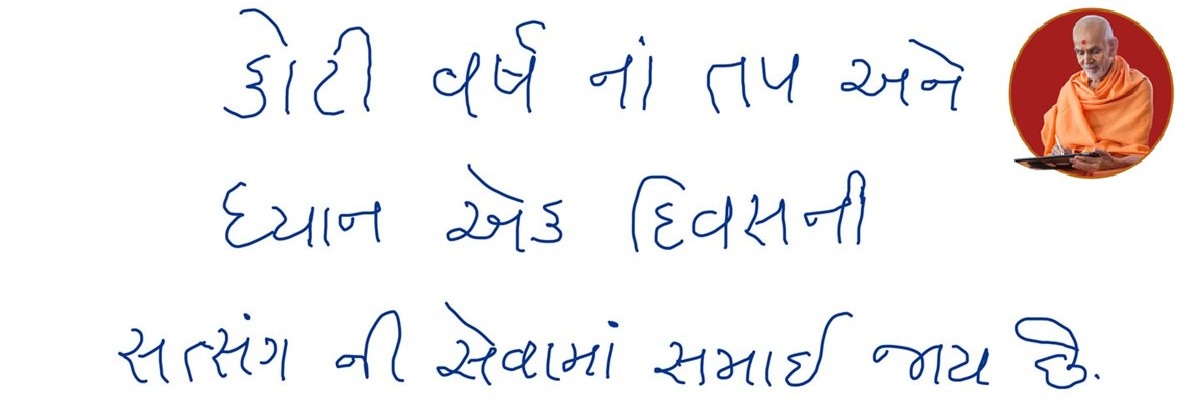 કોટી વર્ષ નાં તપ અને
ધ્યાન એક દિવસની
સત્સંગ ની સેવામાં સમાઈ જાય છે.